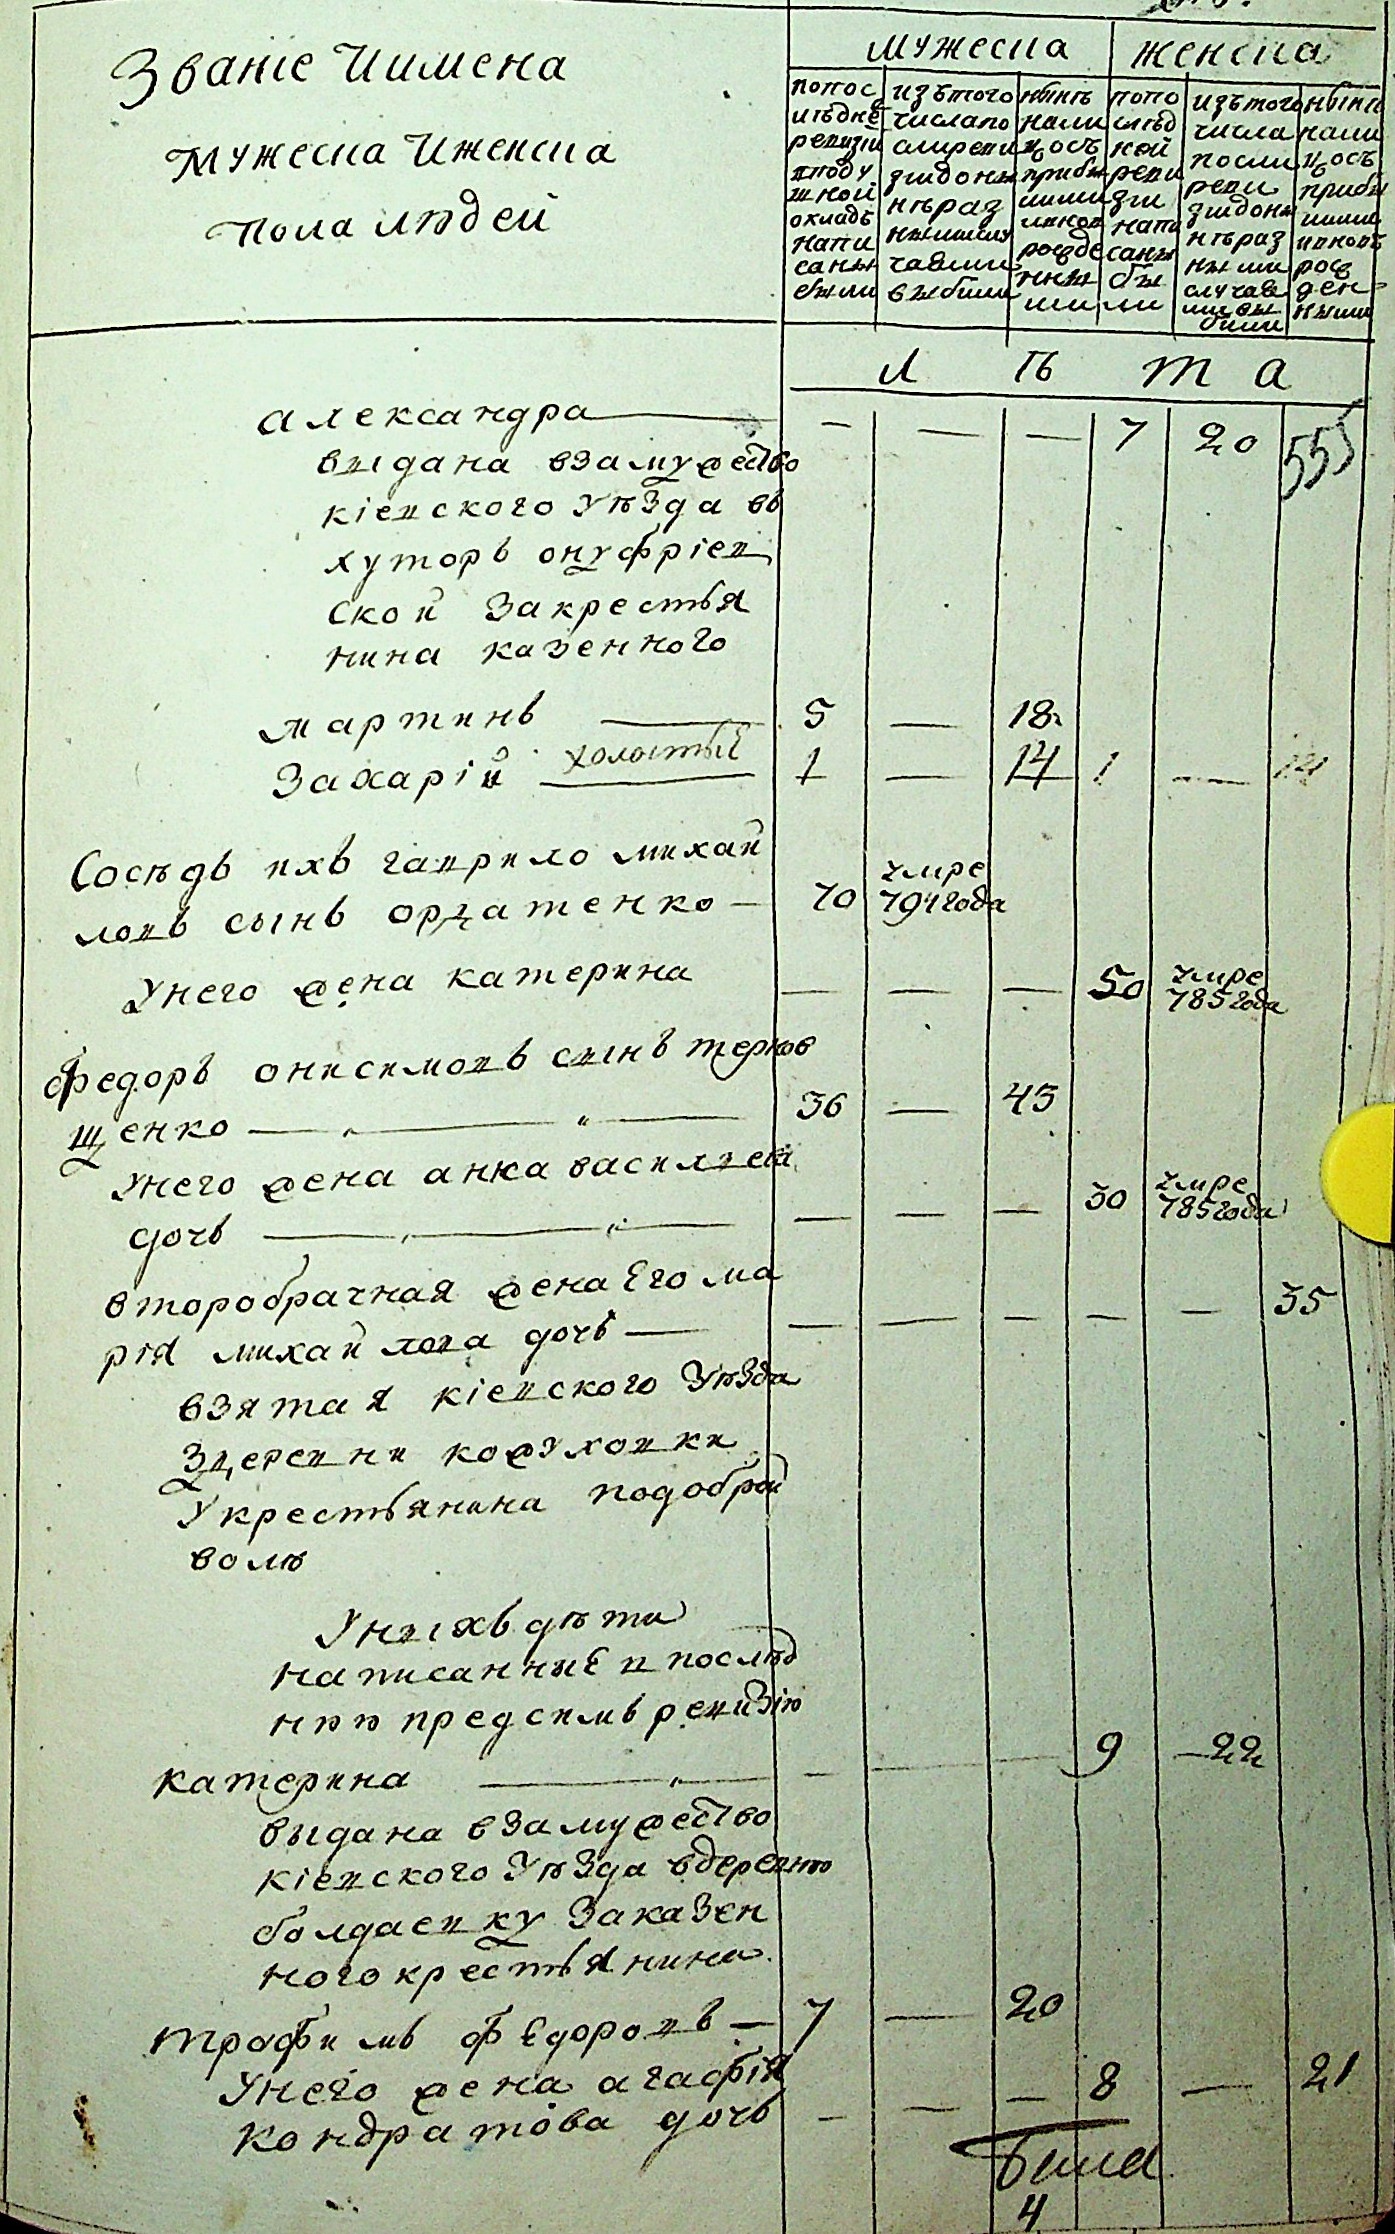 Званіе Иимена
Мужеска Иженска
пола людей
мужеска
женска
попос
лѣдне
ревизіи
вподу
шной
окладъ
напи
саны
были
изътого
числапо
слиреви
зшдоны
нѣраз
нымислу
чаями
выбыли
нынѣ
нали
цость
прибы
лыми
вновь
рожде
нны
ми
попо
слѣд
ней
реви
зіи
напи
саны
бы
ли
изътого
числа
посли
реви
зшдоны
нѣраз
ными
случая
мивы
были
нынѣ
нали
цость
прибы
лыми
ивновь
рож
ден
ными
Л Ѣ Т А
Александра — — — 7 20
555
выдана взамужество
кіевского уѣзда въ
хуторъ онуфріев
ской закрестья
нина казенного
мартинъ 5 — 18
Захарій холостый 1 — 14 1 — 14
Сосѣдъ ихъ гаврило михай
ловъ сынъ ордатенко — 70 умре 794 года
Унего жена катерина — — — 50 умре 785 года
Федоръ онисимовъ сынъ терно
щенко — 36 — 43
Унего жена анна васильева
дочь — — — 30 умре 785 года
второбрачная жена Его ма
рія михайлова дочь — — — — — 35
взятая кіевского уѣзда
здеревни кожуховки
Укрестьянина подоброй
волѣ
Унихъ дѣти
написанныЕ впослѣд
нюю предсимъ ревизію
катерина — — — 9 — 22
выдана взамужество
кіевского уѣзда вдеревню
болдаевку Заказен
ного крестьянина
трофимъ фЕдоровъ — 7 — 20
Унего жена агафія
кондратова дочь — — — 8 — 21
4